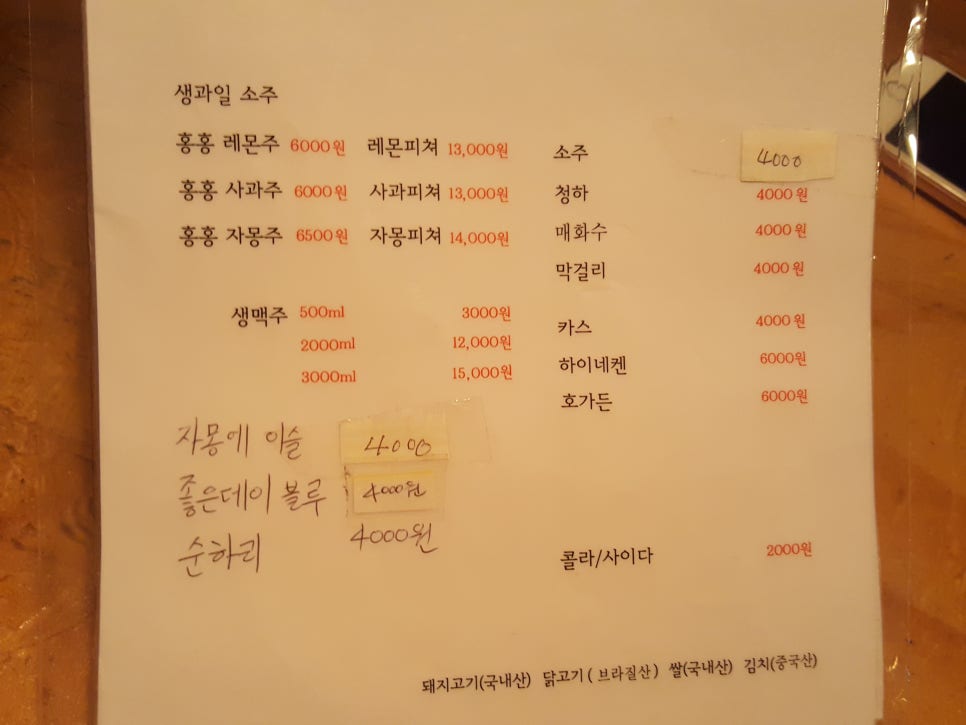 생과일 소주
홍홍 레몬주 6000원 레몬피쳐 13,000원
홍홍 사과주 6000원 사과피쳐 13,000원
홍홍 자몽주 6500원 자몽피쳐 14,000원
생맥주 500ml 3000원
2000ml 12,000원
3000ml 15,000원
자몽에 이슬 4000
좋은데이 블루 4000원
순하리 4000원
소주 4000
청하 4000원
매화수 4000원
막걸리 4000원
카스 4000원
하이네켄 6000원
호가든 6000원
콜라/사이다 2000원
돼지고기(국내산) 닭고기( 브라질산 ) 쌀(국내산) 김치(중국산)